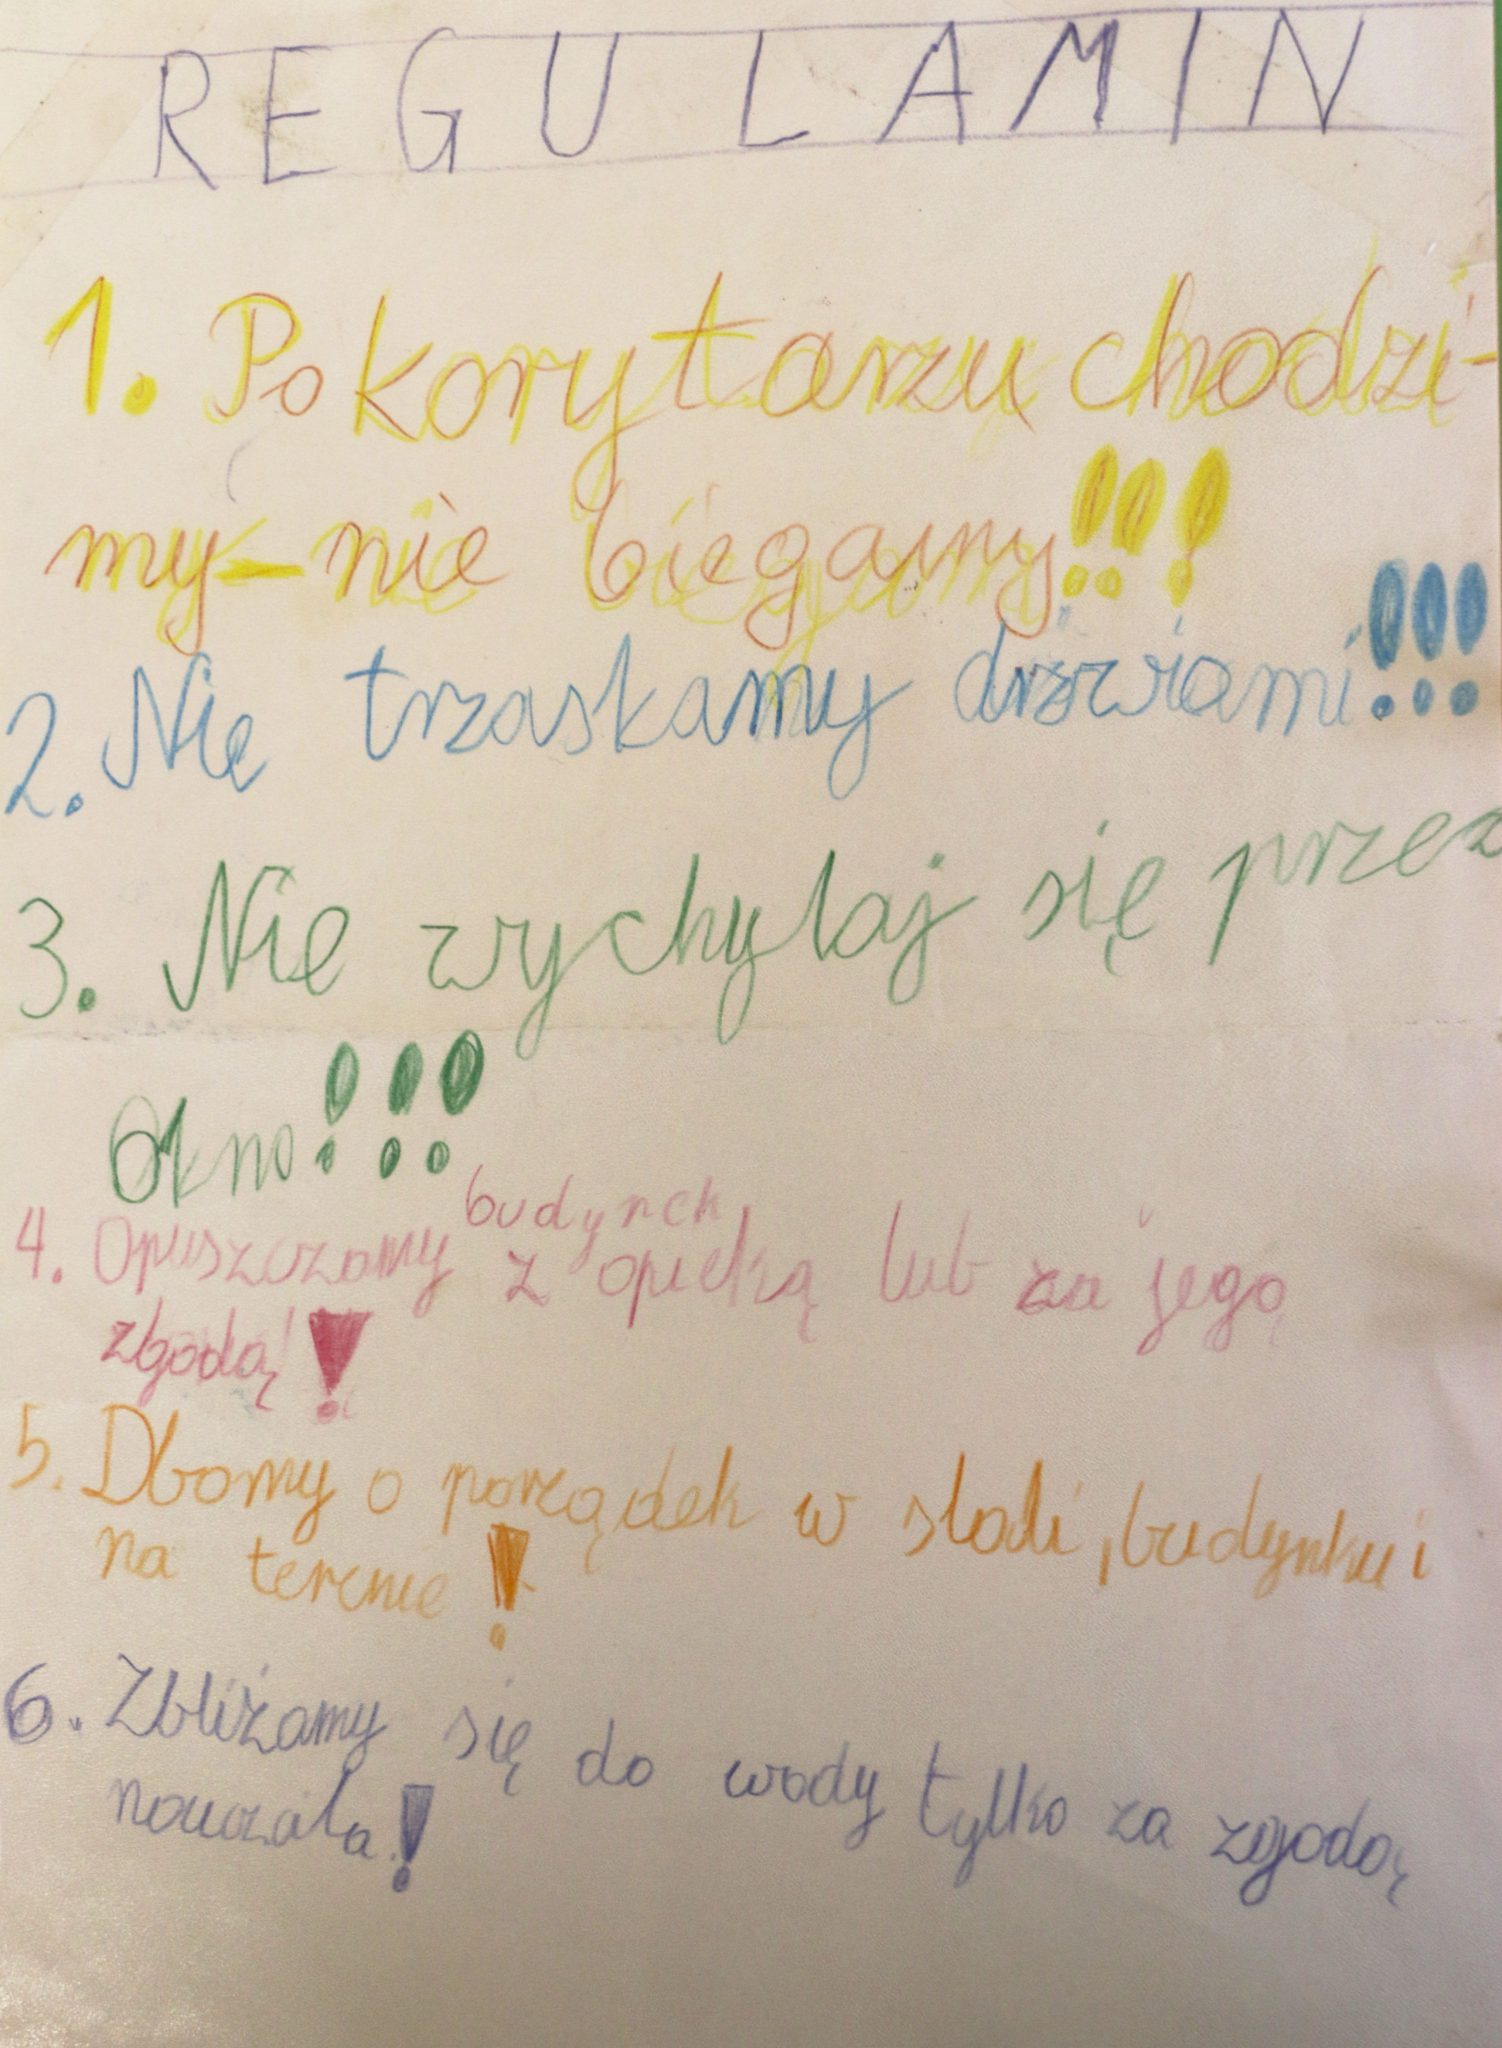 REGULAMIN
1. Po korytarzu chodzi-
my - nie biegamy!!!
2. Nie trzaskamy drzwiami!!!
3. Nie wychylaj się przez
okno!!!
4. Opuszczamy budynek z opieką lub za jegą
zgodą!
5. Dbamy o porządek w sladi, budynku i
na terenie!
6. Zbliżamy się do wody tylko za zgodą